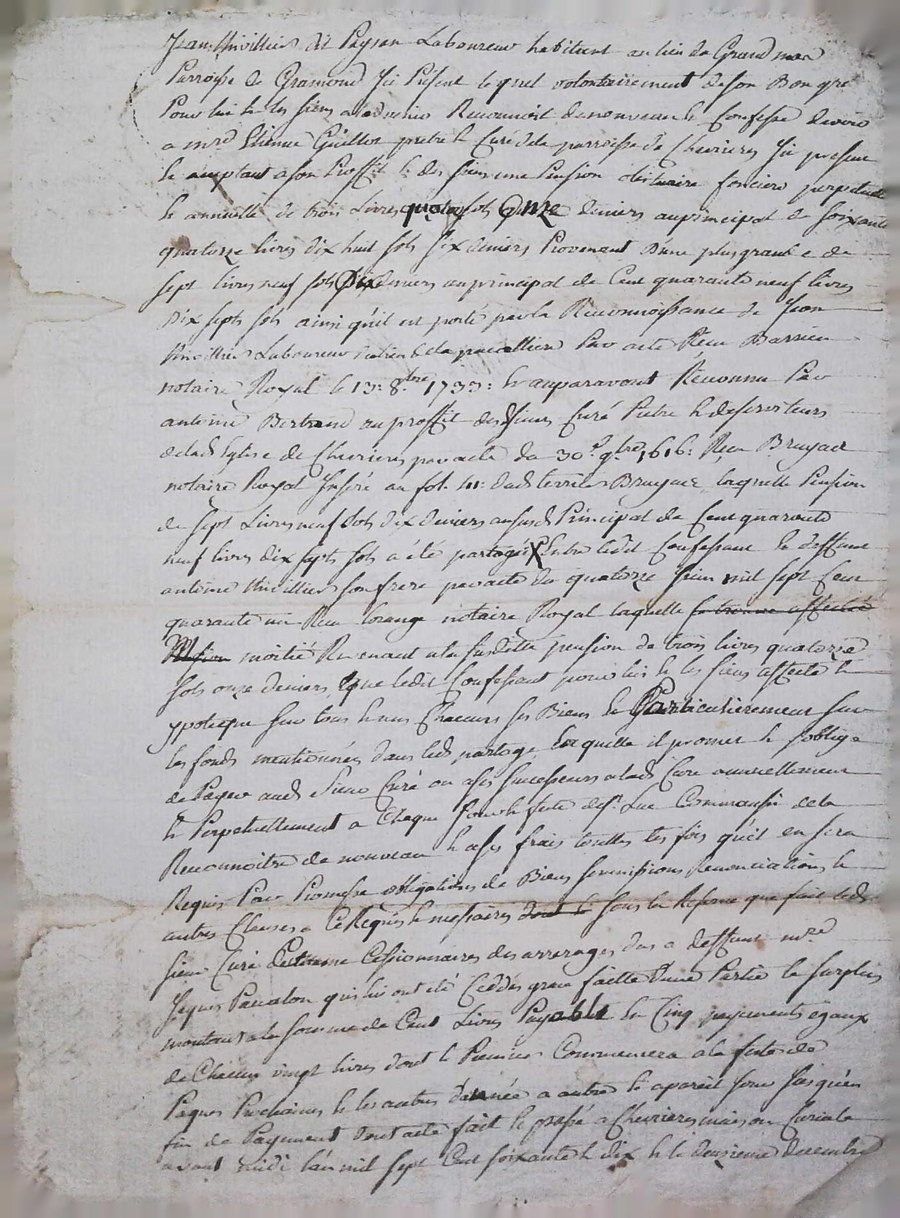 Jean Thivillier dit Paysan Laboureur habitant au lieu de Grand
Parroisse de Gramond Ici Présent lequel volontairement de son Bon gré
Pour lui & les siens a Reconnoit de nouveau & Confesse devoir
a mre Etienne Guillot pretre & Curé de la parroisse de Chevrieres Ici present
& acceptant a son Proffit & des siens une Pension obituaire fonciere perpetuelle
& annuelle de trois Livres quatorze sols onze deniers au principal de soixante
quatorze livres dix huit sols six deniers Provenant d'une plus grande de
sept livres neuf sols Dix deniers au principal de Cent quarante neuf livres
Dix septs sols ainsi qu'il est porté par la Reconnoissance de Jean
thivillier Laboureur de la Par acte Reçu Barrieu
notaire Royal le 13: 8bre 1733: & auparavant Reconnu Par
antoine Bertrand au proffit des Sieurs Curé Pretre & deserviteurs
de lad Eglise de Chevrieres par acte du 30e 9bre 1616: Reçu Bruyas
notaire Royal Inséré au fol. 111: dud terrier Bruyas, laquelle Pension
de sept Livres neuf sols dix deniers au susd Principal de Cent quarante
neuf livres dix septs sols a été partagée X Entre ledit Confessant & deffunt
antoine thivillier son frere par acte du quatorze Juin mil sept Cent
quarante un Reçu Lorange notaire Royal laquelle se trouve affectée
moitié Revenant a la susditte pension de trois livres quatorze
sols onze deniers, que ledit Confessant pour lui & les siens affecte &
ypoteque sur tous & uns Chacuns ses Biens & Particulierement sur
les fonds mentionnés dans led partage, laquelle il promet & s'oblige
de Payer aud Sieur Curé ou a ses successeurs a lad Cure annuellement
& Perpetuellement a Chaque Jour & fete de St Luc Comme aussi de la
Reconnoitre de nouveau & a ses frais touttes les fois qu'il en sera
Requis Par Promesse obligations de Biens soumissions Renonciations &
autres Clauses a Ce Requises & nessaires dont & sous la Reserve que fait led
sieur Curé Cessionnaires des arrerages dus a deffunt mre
Jaques Pascalon qui lui ont été Cédés grace faitte d'une Partie le surplus
montant a la somme de Cent Livres Payable En Cinq payements egaux
de Chacun vingt livres dont le Premier Commencera a la fete de
Paques Prochaines & les autres d'année a autre & apareil Jour Jusqu'en
fin de Payement dont acte fait & passé a Chevrieres maison Curiale
avant midi l'an mil sept Cent soixante & dix & le deuxieme decembre